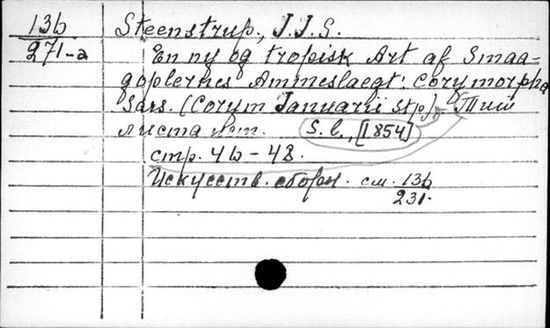 136
271-a
Steenstrup, J.J.S.
En ny og tropisk Art af Smaa-
goplernes Ammeslaegt: Corymorpha
Sars. (Corym Januarii Stp)
листа
S. l., [1854]
стр. 46-48.
Искусств. сборн. см. 136
231.